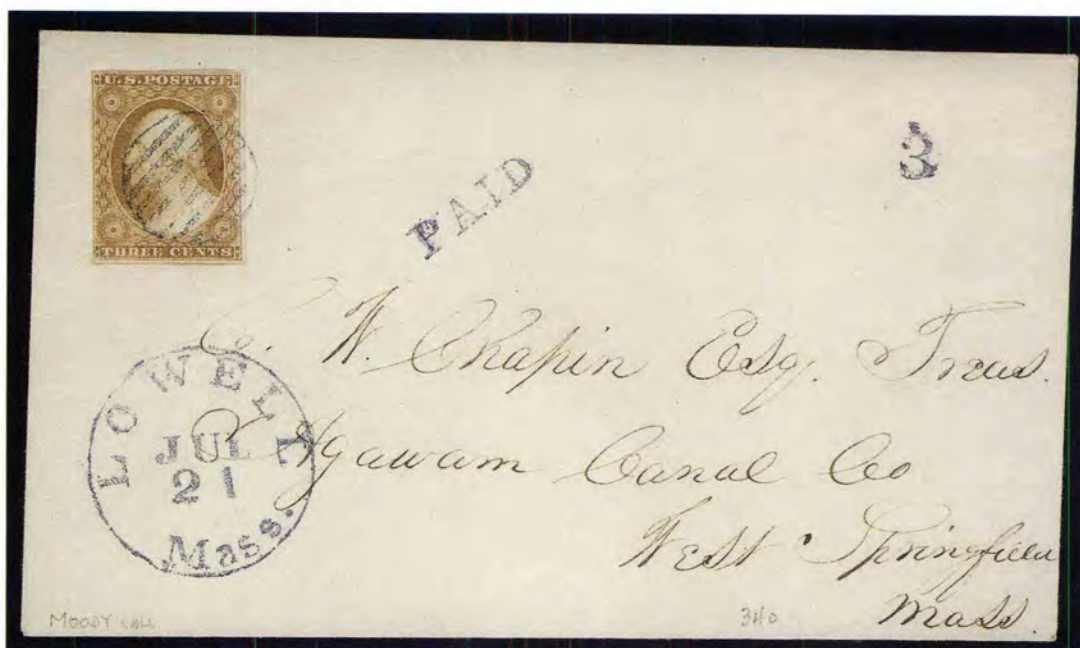 U.S. POSTAGE
THREE CENTS
PAID
3
C. W. Chapin Esq. Treas.
Agawam Canal Co
West Springfield
Mass.
LOWELL
JUL
21
Mass.
MOODY COLL
340